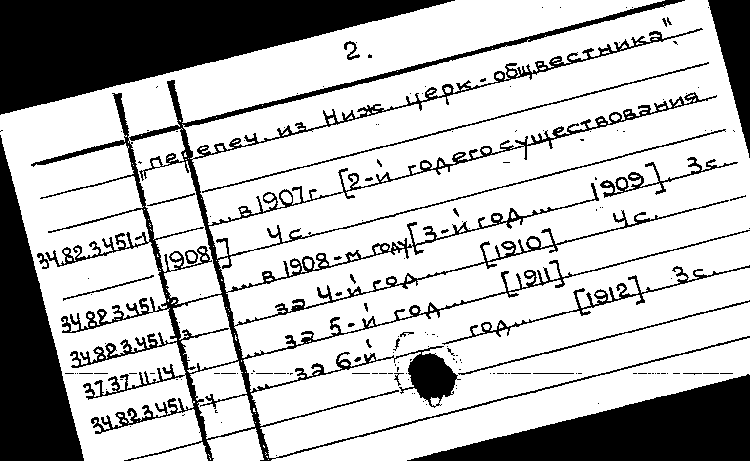 2.
"перепеч. из Ниж. церк.-общ.вестника"
... в 1907г. [2-й год его существования
34.82.3.451.-1 1908] 4 с.
... в 1908-м году [3-й год ... 1909]. 3 с.
34.82.3.451.-2 ... за 4-й год ... [1910]. 4 с.
34.82.3.451.-3 ... за 5-й год ... [1911].
37.37.11.14.-1 ... за 6-й год ... [1912]. 3 с.
34.82.3.451.-4